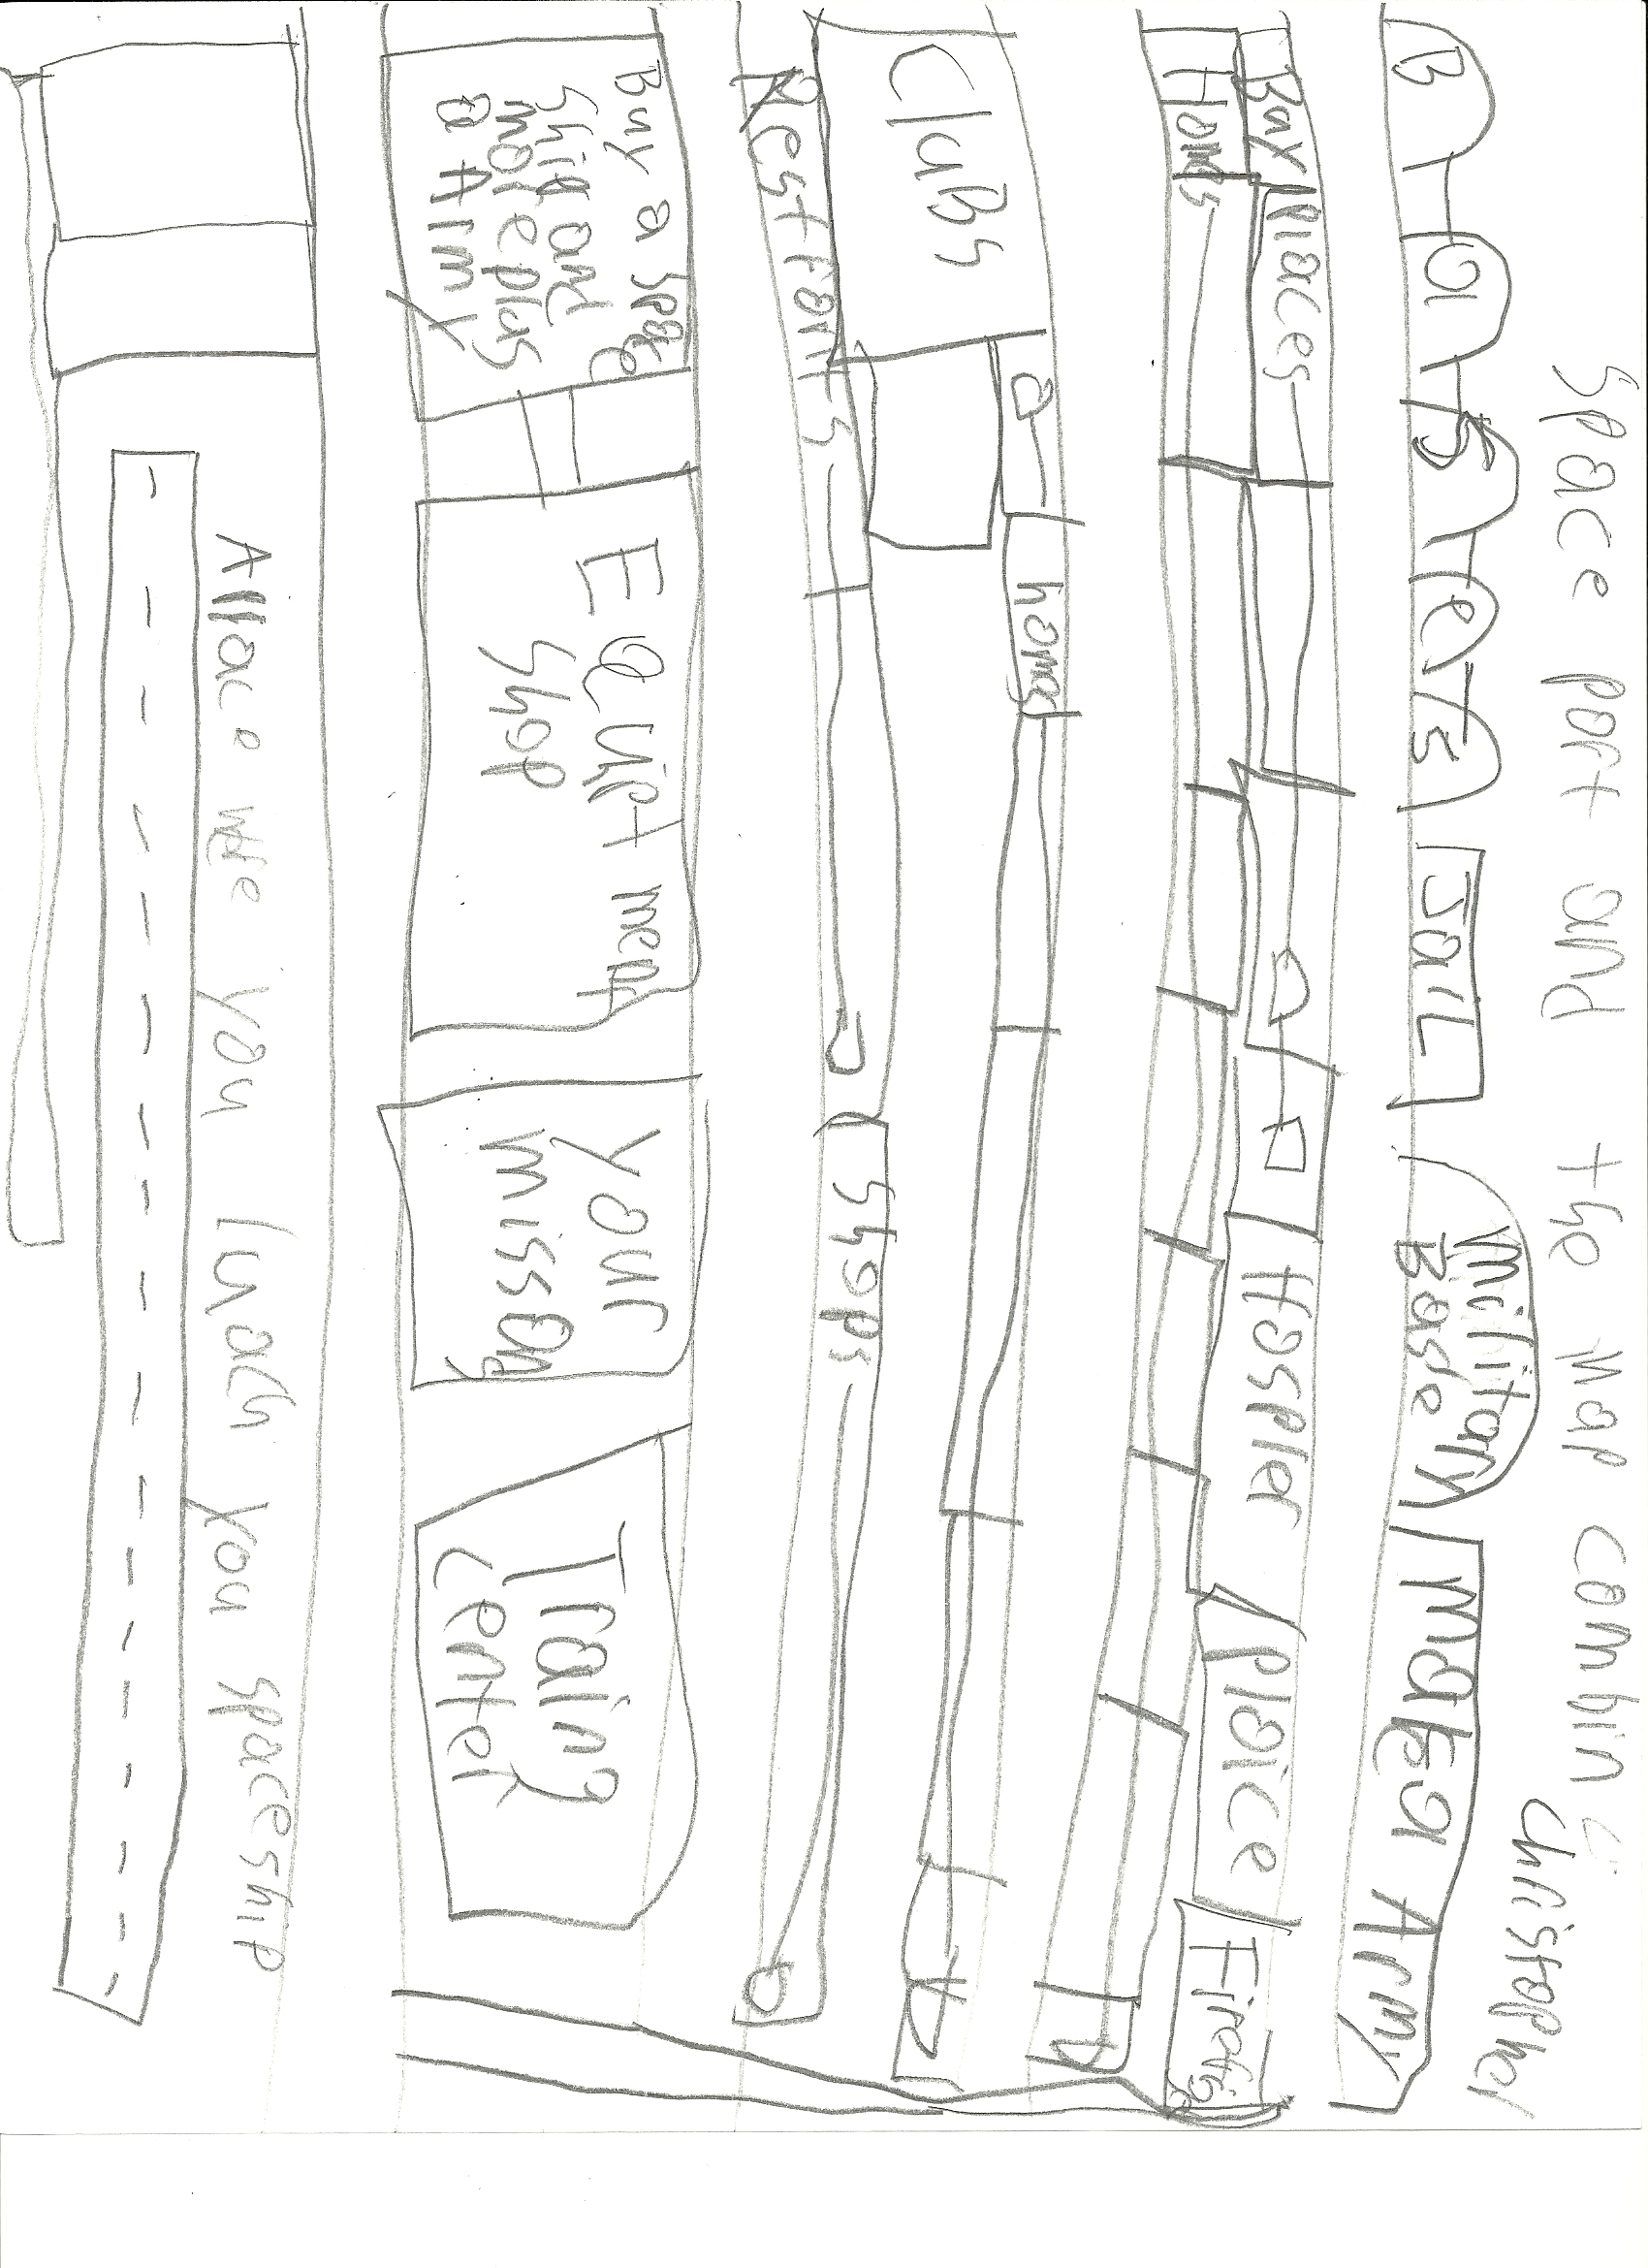 Space port and the Map combin
christopher
B a n k e T s
Jail
milhitary
Base
make a Army
Buy Places
Homes
Hospler
Plaice
Firefis
Clubs
homes
Restronts
Shops
Buy a space
ship and
more plus
a Army
EQuipt ment
Shop
Your
missen
Traing
center
Allace were you lunch you spaceship